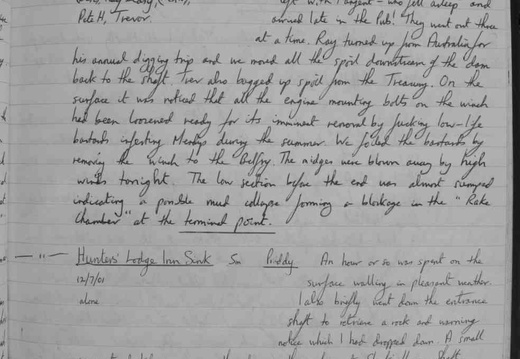 left with 1 urgent - who fell asleep and
Pete H, Trevor. arrived late in the Pub! They went out three
at a time. Ray turned up from Australia for
his annual digging trip and we moved all the spoil downstream of the dam
back to the shaft. Trev also bagged up spoil from the Treasury. On the
surface it was noticed that all the engine mounting bolts on the winch
had been loosened ready for its imminent removal by fucking low-life
bastards infesting Mendip during the summer. We foiled the bastards by
removing the winch to the Belfry. The midges were blown away by high
winds tonight. The low section before the end was almost sumped
indicating a possible mud collapse forming a blockage in the "Rake
Chamber" at the terminal point.
— " — Hunters' Lodge Inn Sink Sm Priddy An hour or so was spent on the
12/7/01 surface walling in pleasant weather.
alone I also briefly went down the entrance
shaft to retrieve a rock and warning
notice which I had dropped down. A small